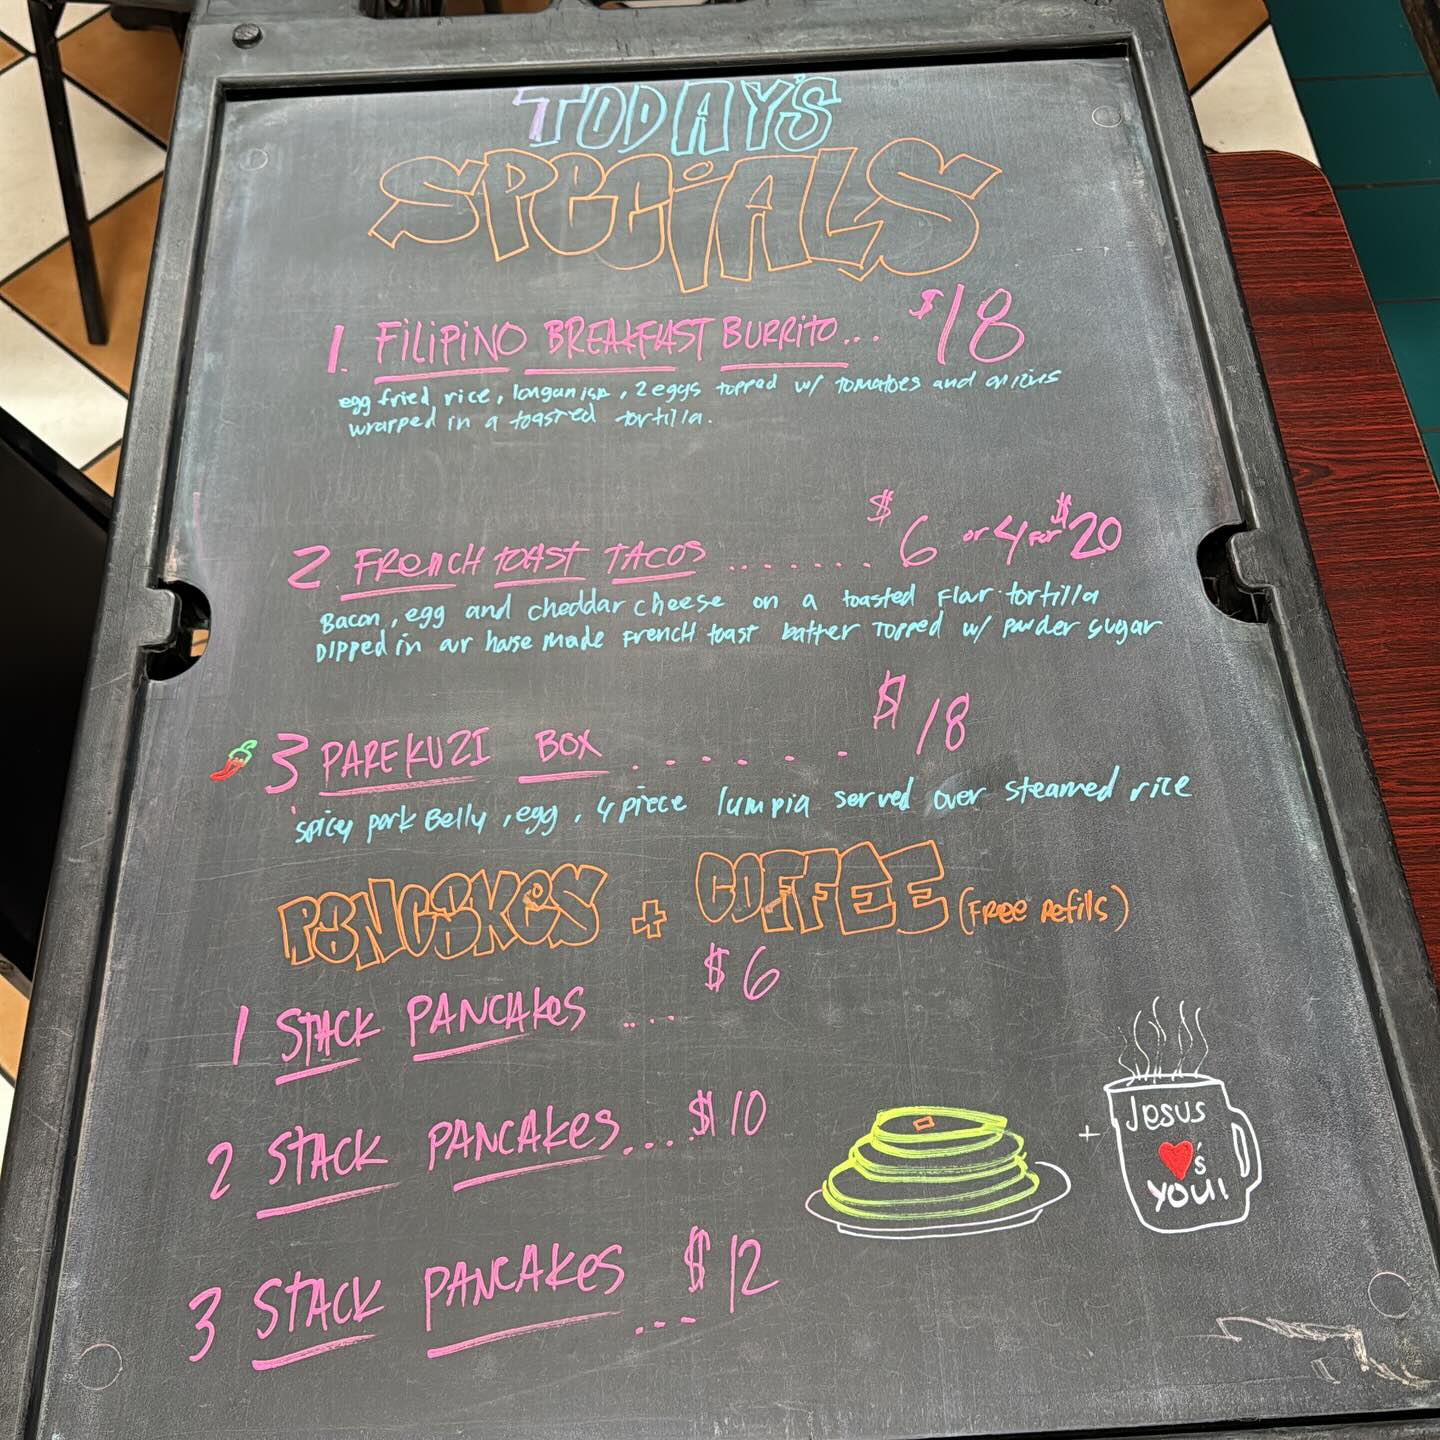 TODAY'S
SPECIALS
1. FILIPINO BREAKFAST BURRITO... $18
egg fried rice, longanisa, 2 eggs topped w/ tomatoes and onions
wrapped in a toasted tortilla.
2 FRENCH TOAST TACOS ........ $6 or 4 for $20
Bacon, egg and cheddar cheese on a toasted flour tortilla
Dipped in our house made French toast batter topped w/ powder sugar
3 PAREKUZI BOX ....... $18
spicy pork Belly, egg, 4 piece lumpia served over steamed rice
PANCAKES + COFFEE (FREE Refills)
1 STACK PANCAKES .... $6
2 STACK PANCAKES... $10
3 STACK PANCAKES ... $12
+
Jesus
❤'s
YOU!